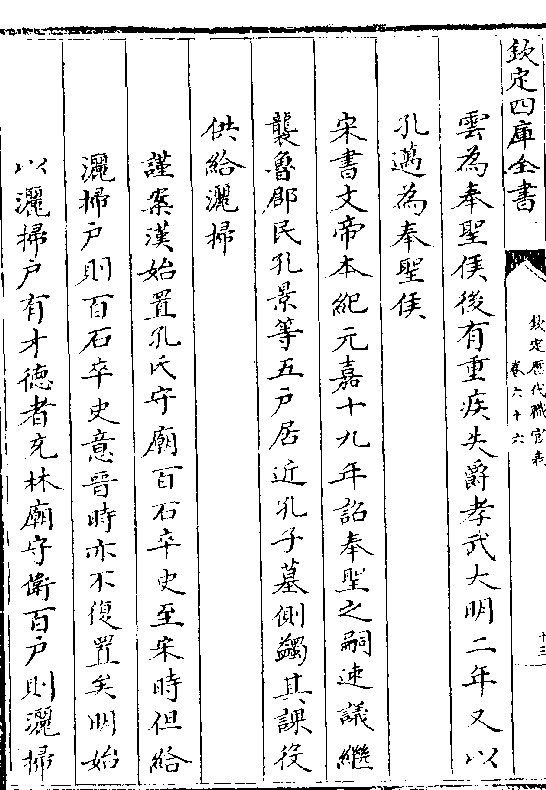 欽定四庫全書
欽定歷代職官表
卷六十六
十三
雲為奉聖侯後有重疾失爵孝武大明二年又以
孔邁為奉聖侯
宋書文帝本紀元嘉十九年詔奉聖之嗣速議繼
襲魯郡民孔景等五户居近孔子墓側蠲其課役
供給灑掃
謹案漢始置孔氏守廟百石卒史至宋時但給
灑掃户則百石卒史意晉時亦不復置矣明始
以灑掃户有才徳者充林廟守衛百户則灑掃